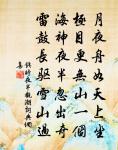 月夜舟如天上坐
極目更無山一個
海神夜半忽出奇
雷鼓長驅雪山過
錢塘夜半觀潮詞與衆
集